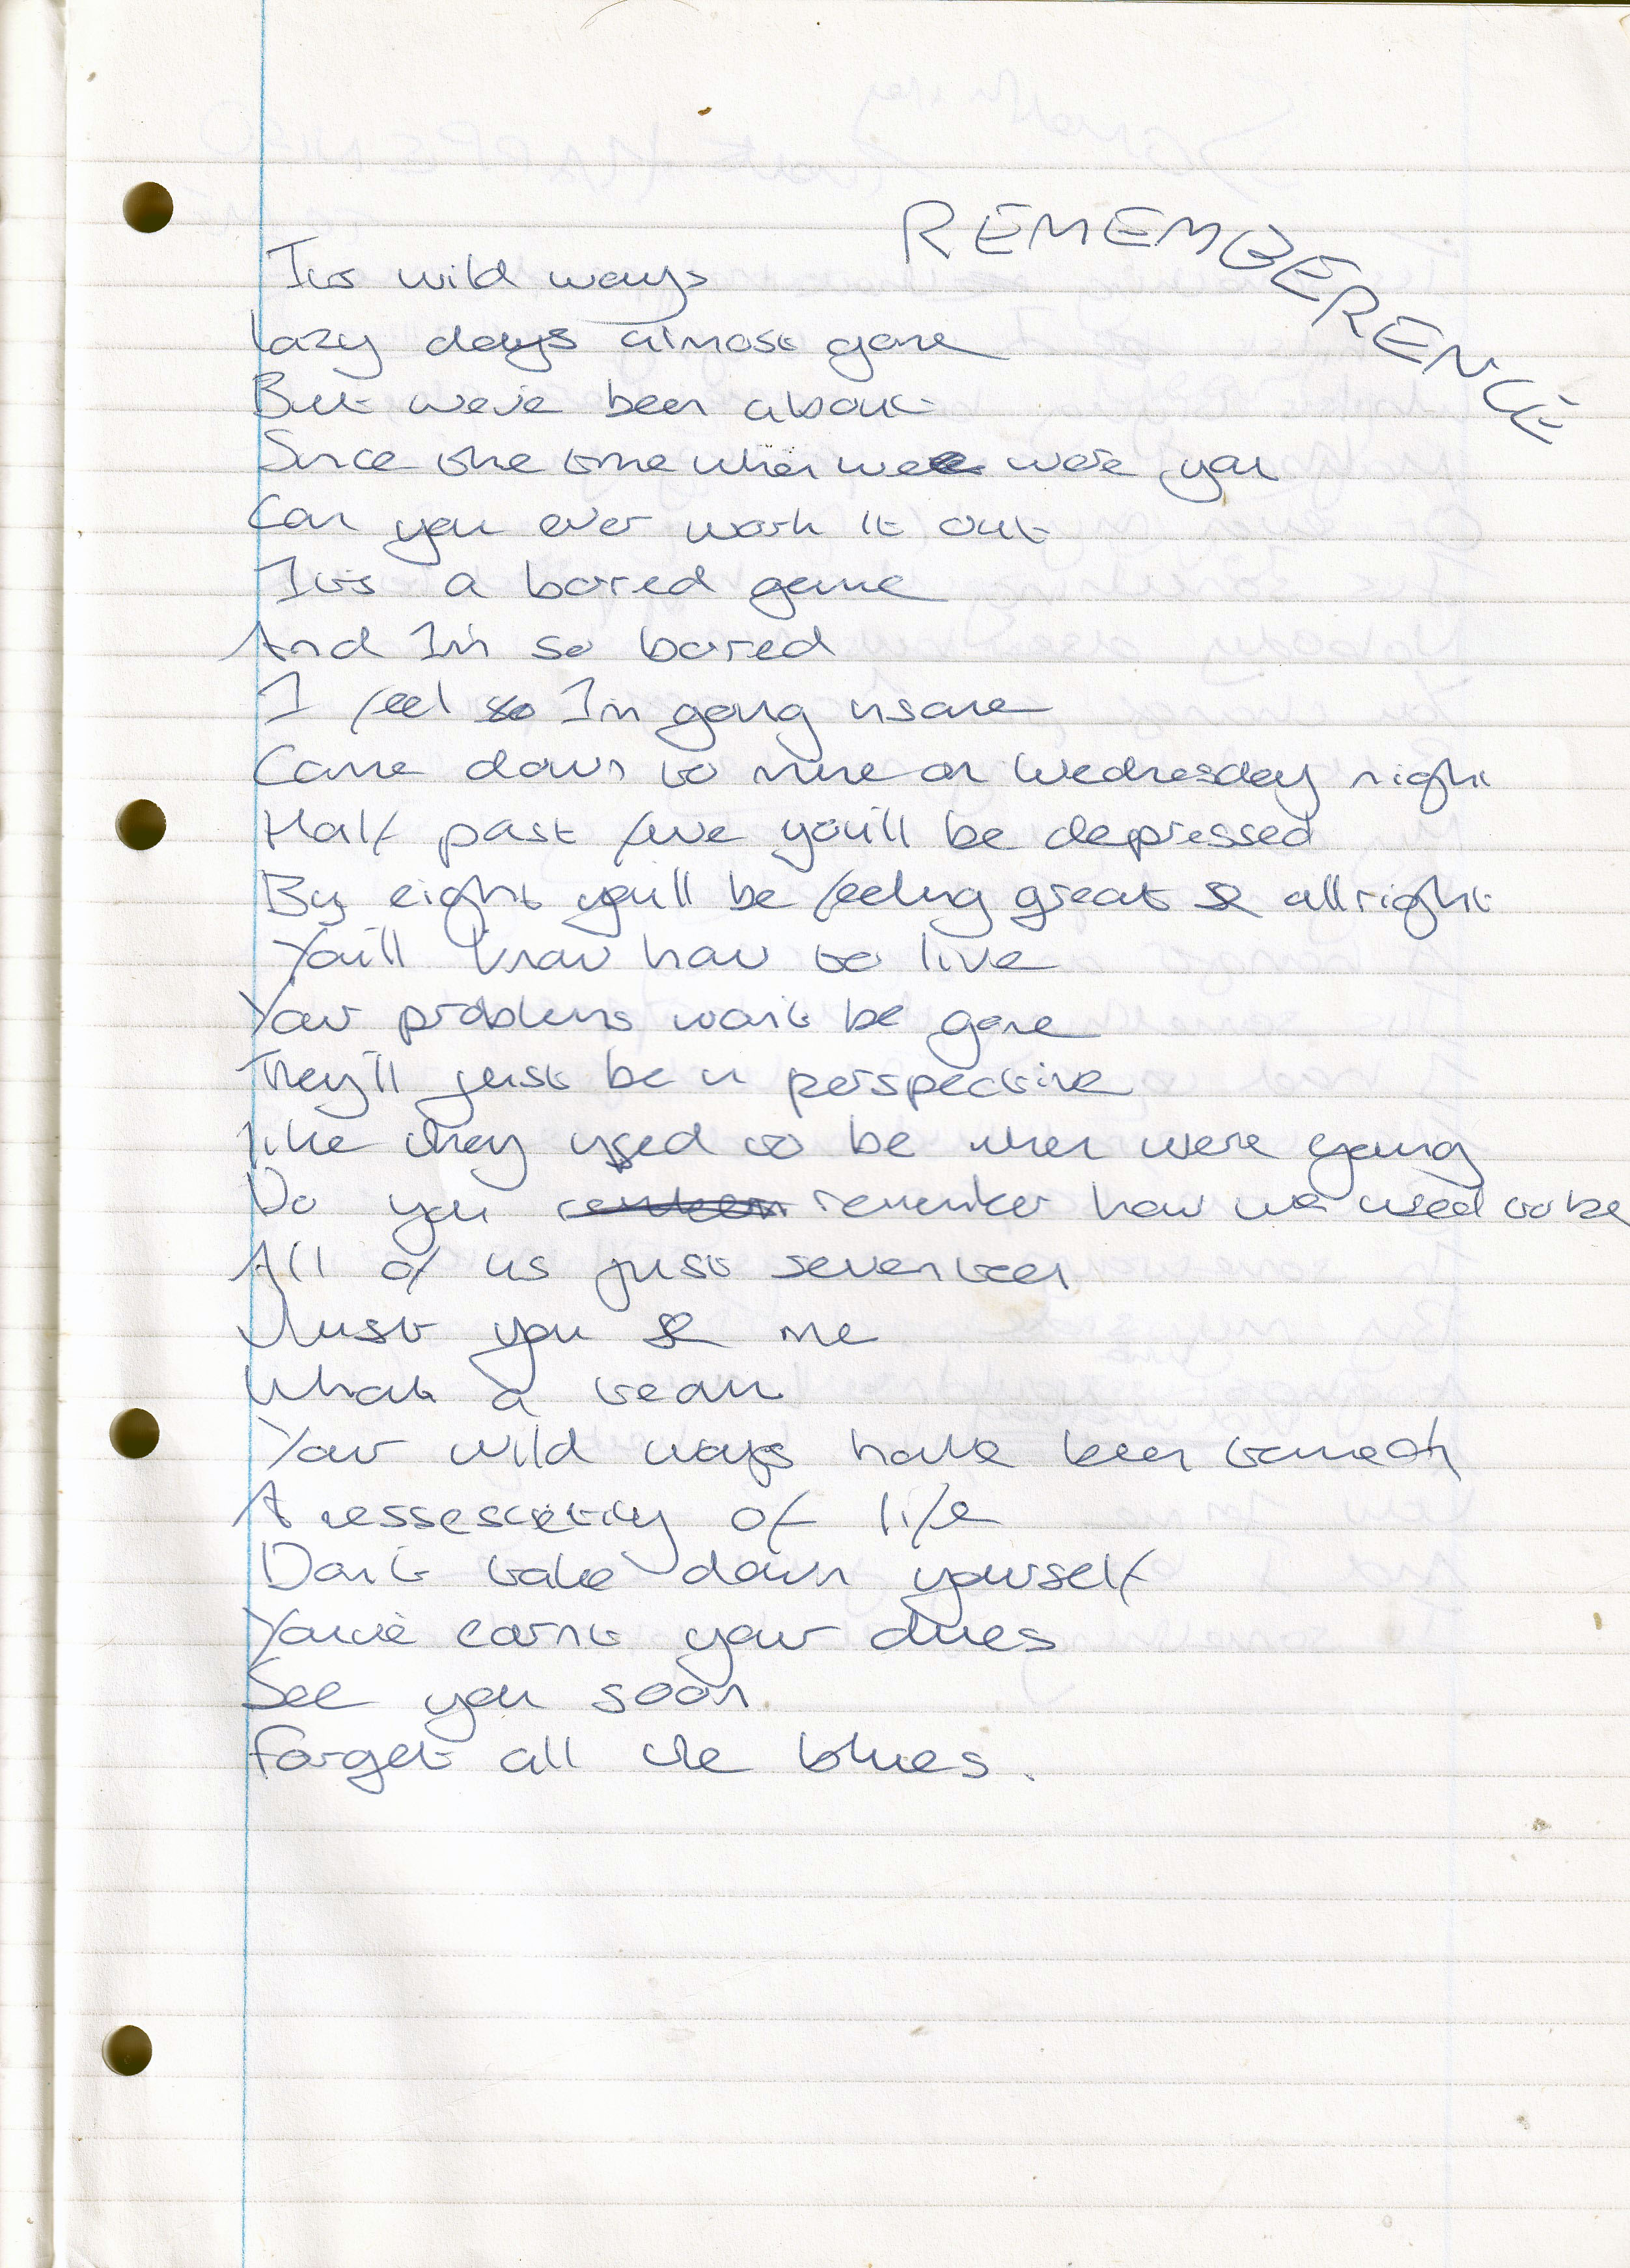 REMEMBERENCE
Its wild ways
lazy days almost gone
But we've been about
Since the time when we were you
Can you ever work it out
It's a bored game
And I'm so bored
I feel so I'm going insane
Come down to mine on Wednesday night
Half past five you'll be depressed
By eight you'll be feeling great & allright
You'll know how to live
Your problems won't be gone
They'll just be in perspective
like they used to be when were young
Do you remember how we used to be
All of us just seventeen
Just you & me
What a team
Your wild ways have been tamed
A of life
Don't take down yourself
You've earnt your dues
See you soon
Forget all the blues.